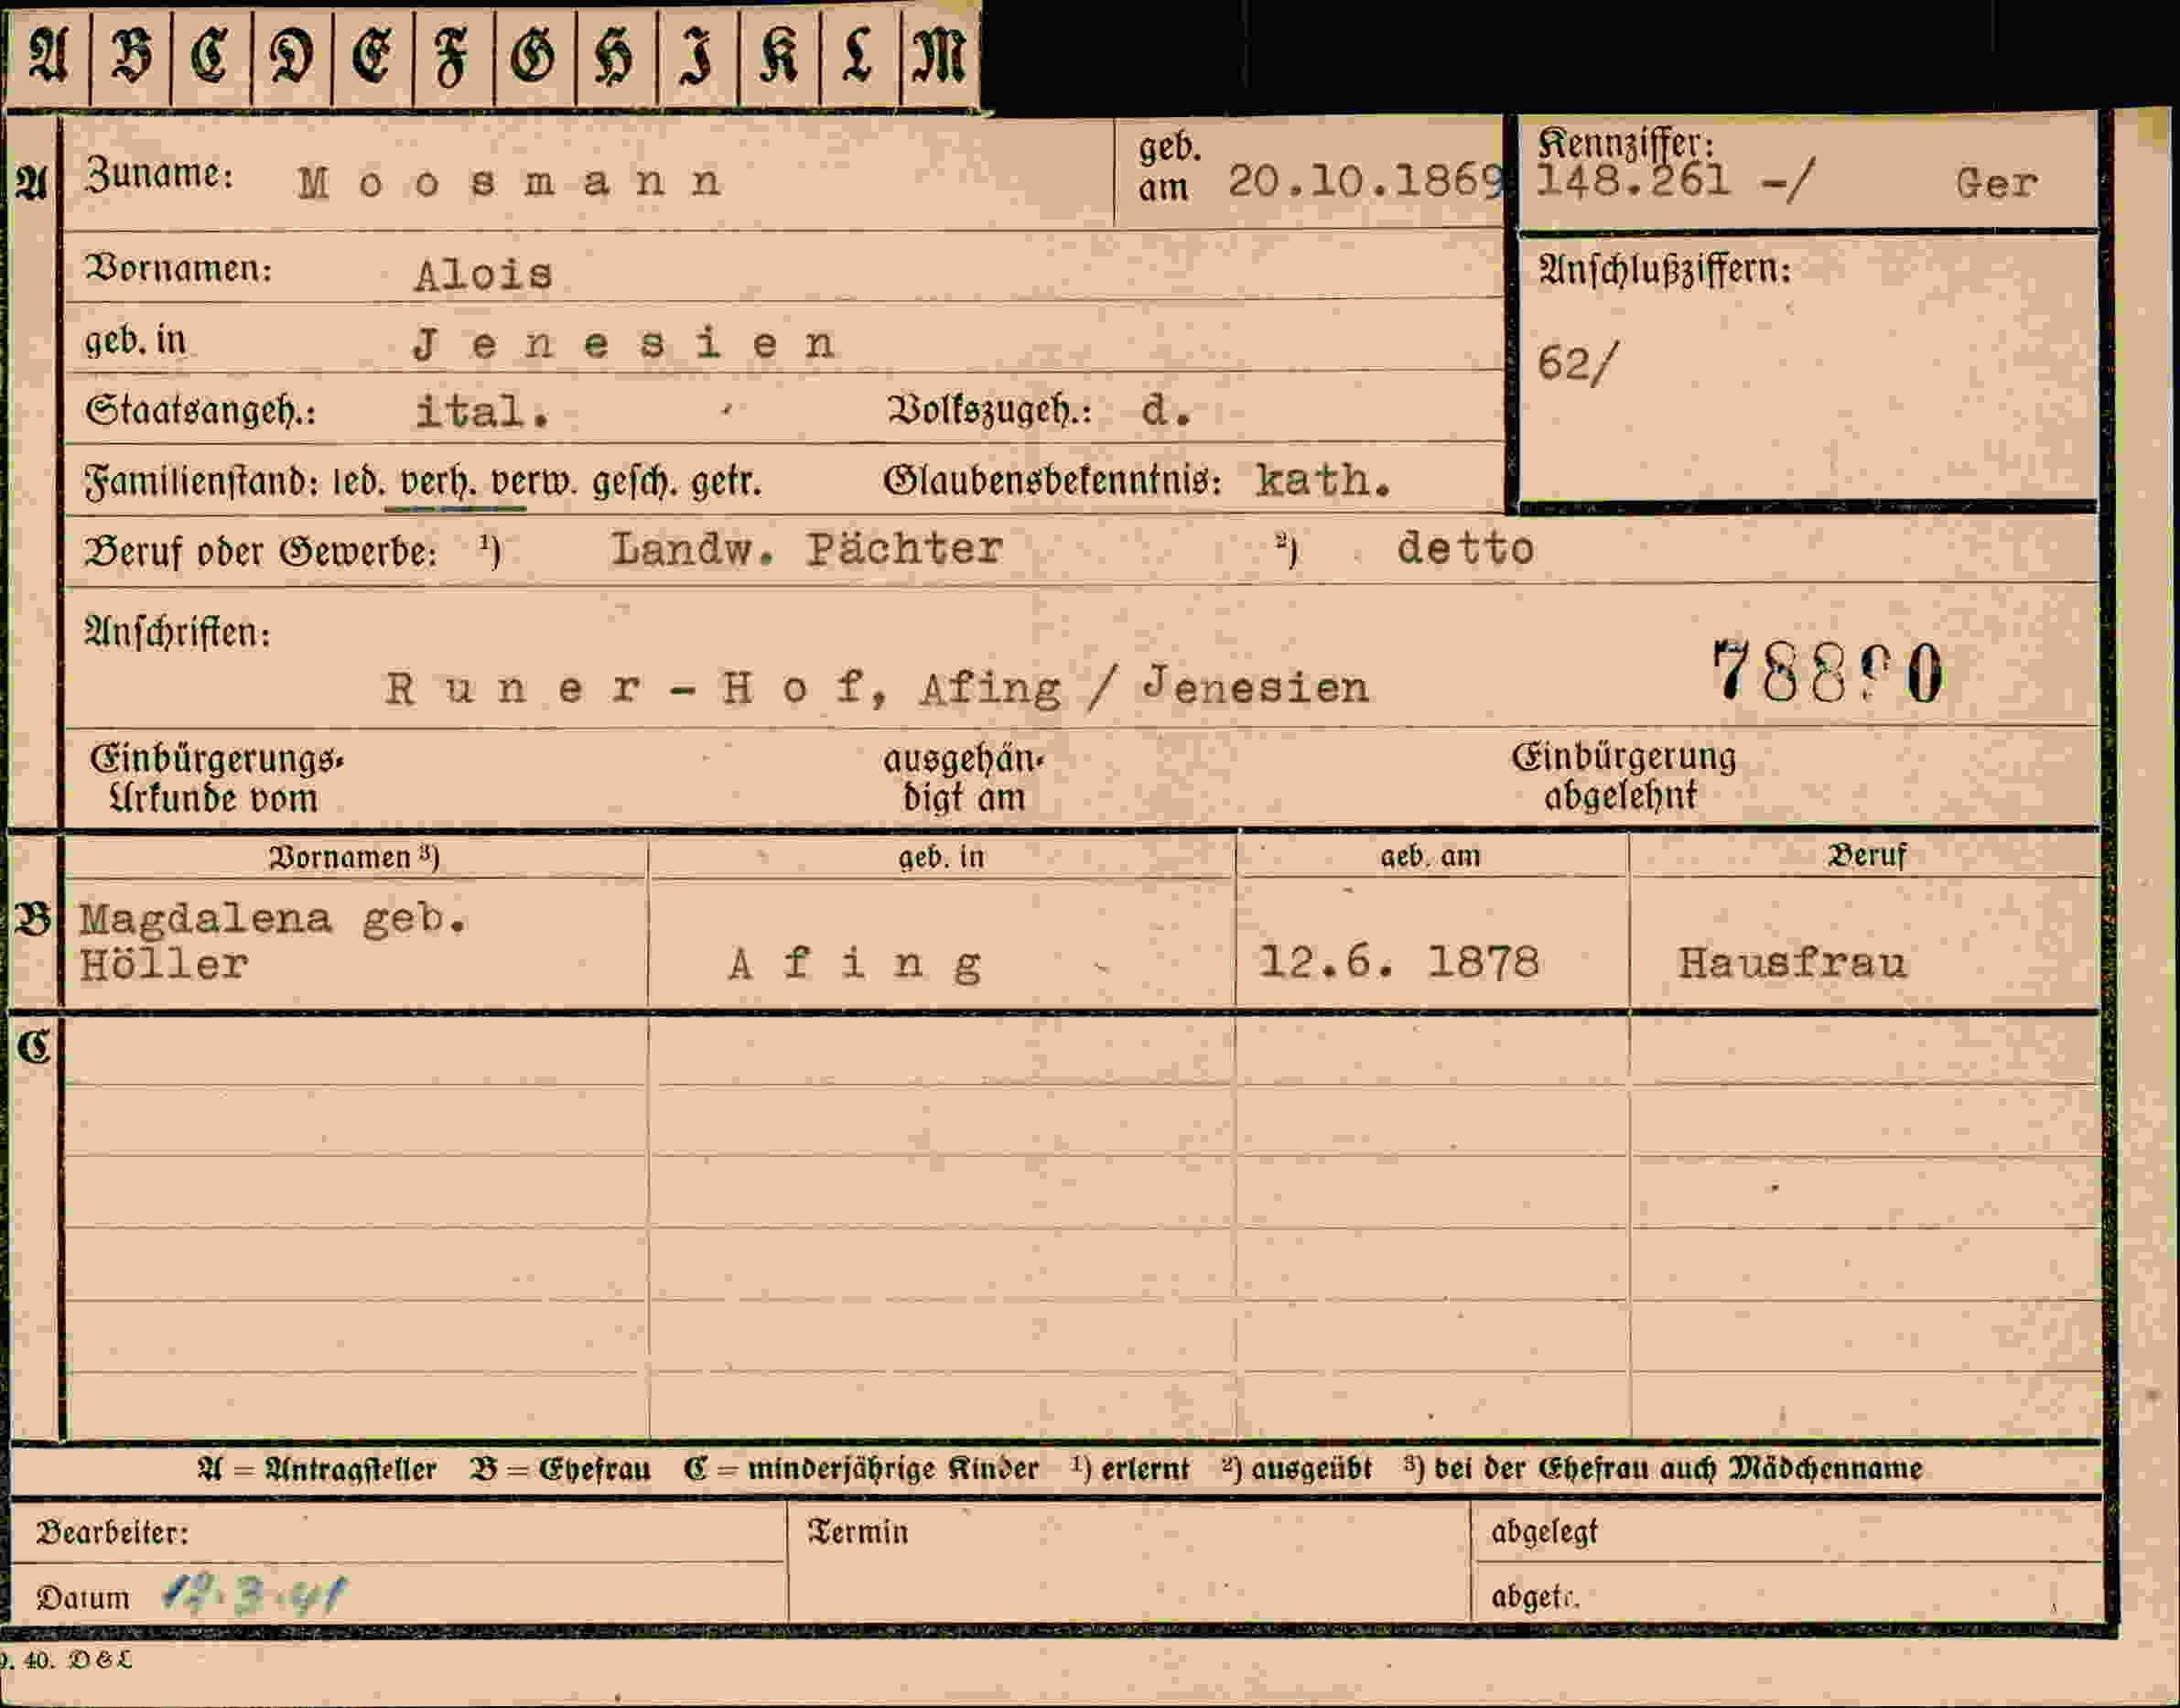 A B C D E F G H I K L M
A Zuname: Moosmann geb. am 20.10.1869 Kennziffer: 148.261 -/ Ger
Vornamen: Alois Anschlußziffern:
geb. in Jenesien 62/
Staatsangeh.: ital. Volkszugeh.: d.
Familienstand: led. verh. verw. gesch. getr. Glaubensbekenntnis: kath.
Beruf oder Gewerbe: ¹) Landw. Pächter ²) detto
Anschriften:
Runer-Hof, Afing / Jenesien
Einbürgerungs- ausgehän- Einbürgerung
Urkunde vom digt am abgelehnt
Vornamen ³) geb. in geb. am Beruf
B Magdalena geb.
Höller Afing 12.6. 1878 Hausfrau
C
A = Antragsteller B = Ehefrau C = minderjährige Kinder ¹) erlernt ²) ausgeübt ³) bei der Ehefrau auch Mädchenname
Bearbeiter: Termin abgelegt
Datum abgetr.
40. D & L